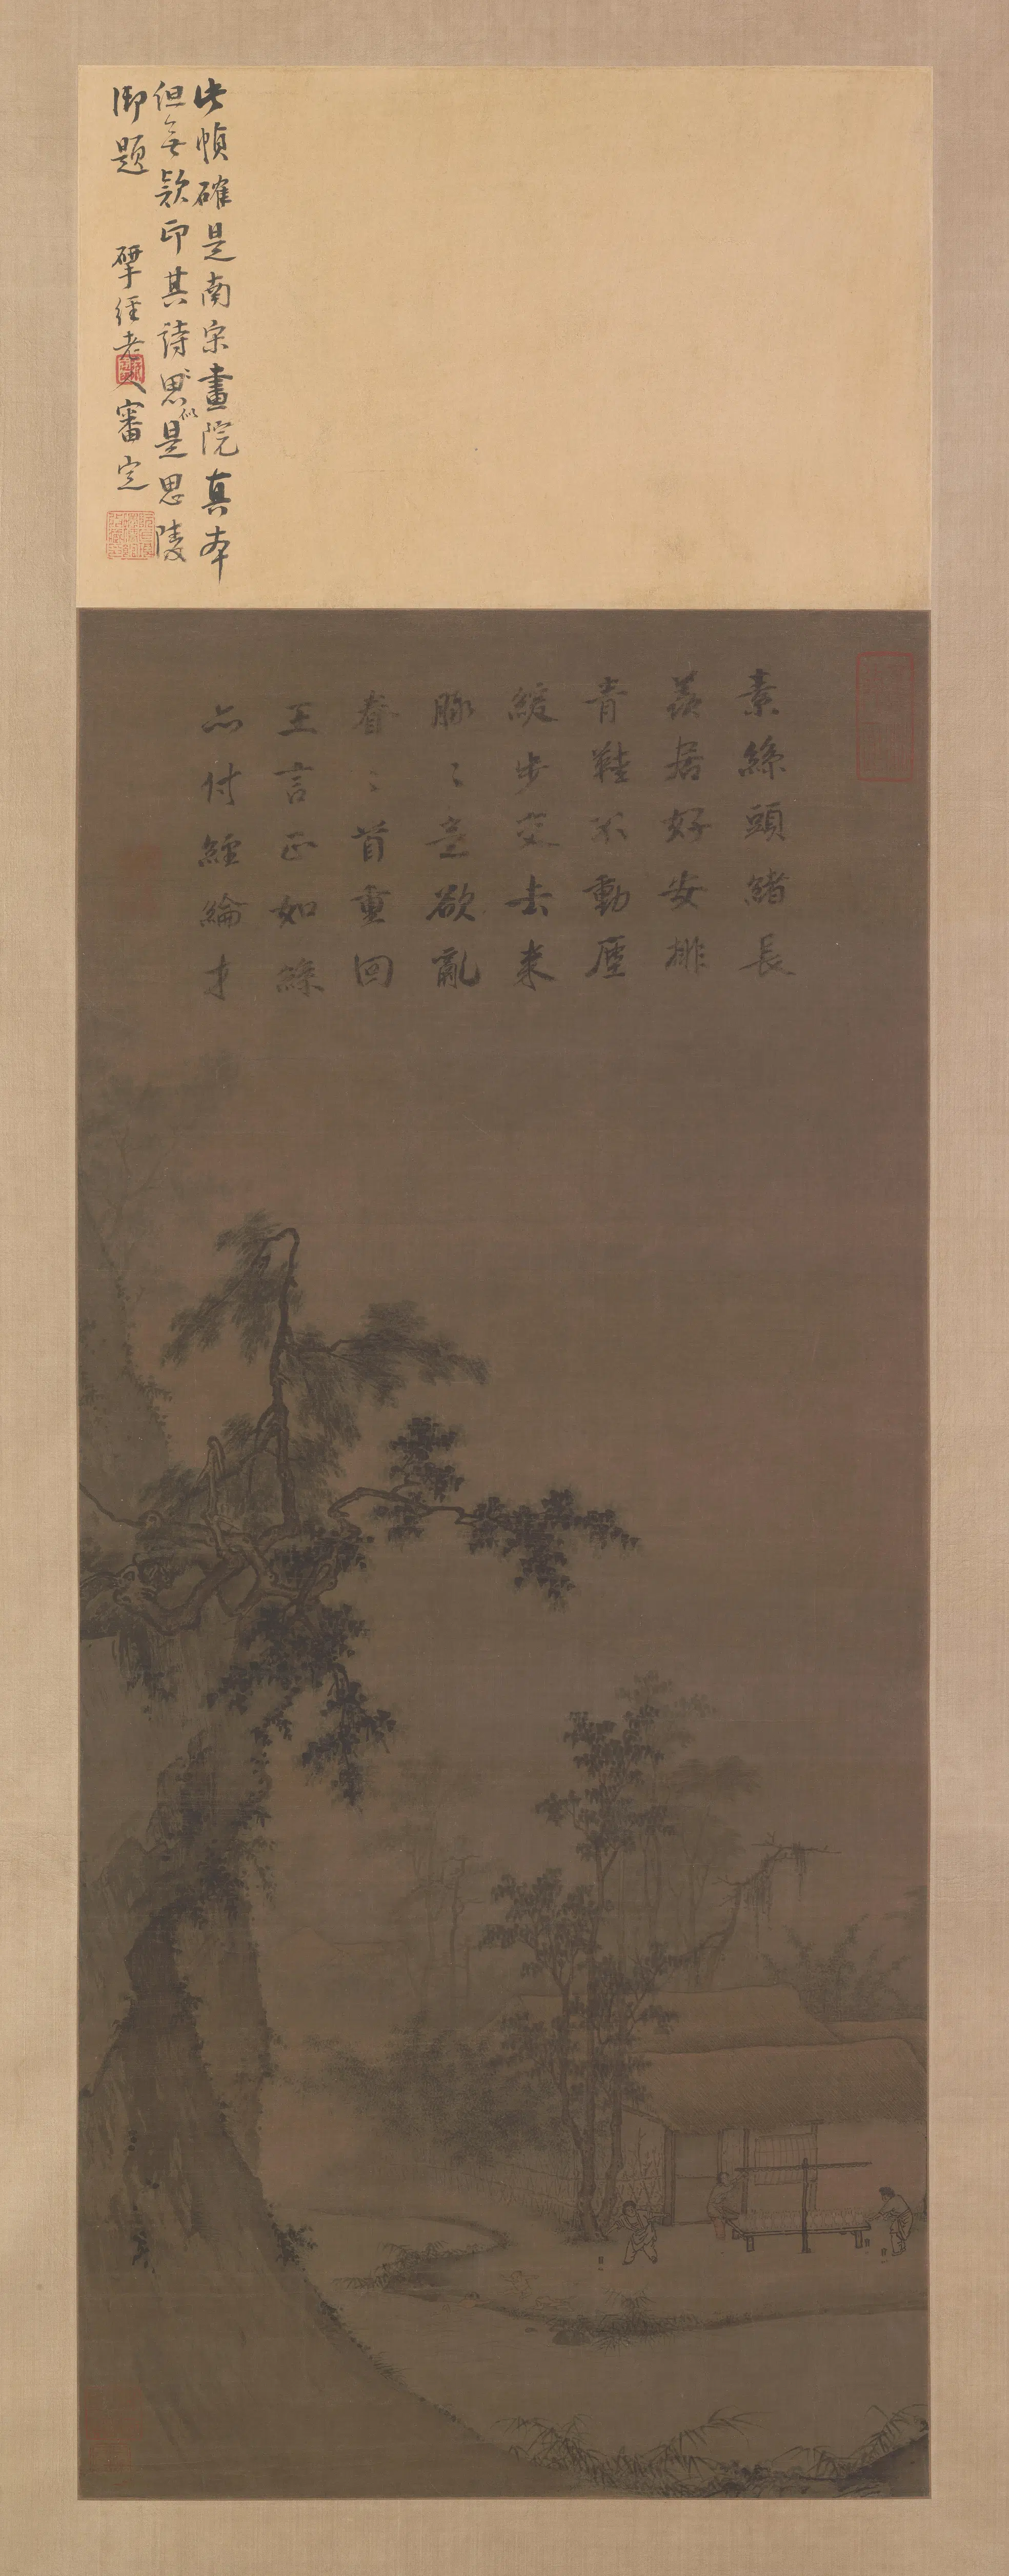 此幀確是南宋畫院真本
但無款印其詩思似是思陵
御題 揅經老人審定
素絲頭緒長
羨居好安排
青鞋不動塵
緩步交去來
脉〻意欲亂
眷〻首重回
王言正如絲
亦付經綸才